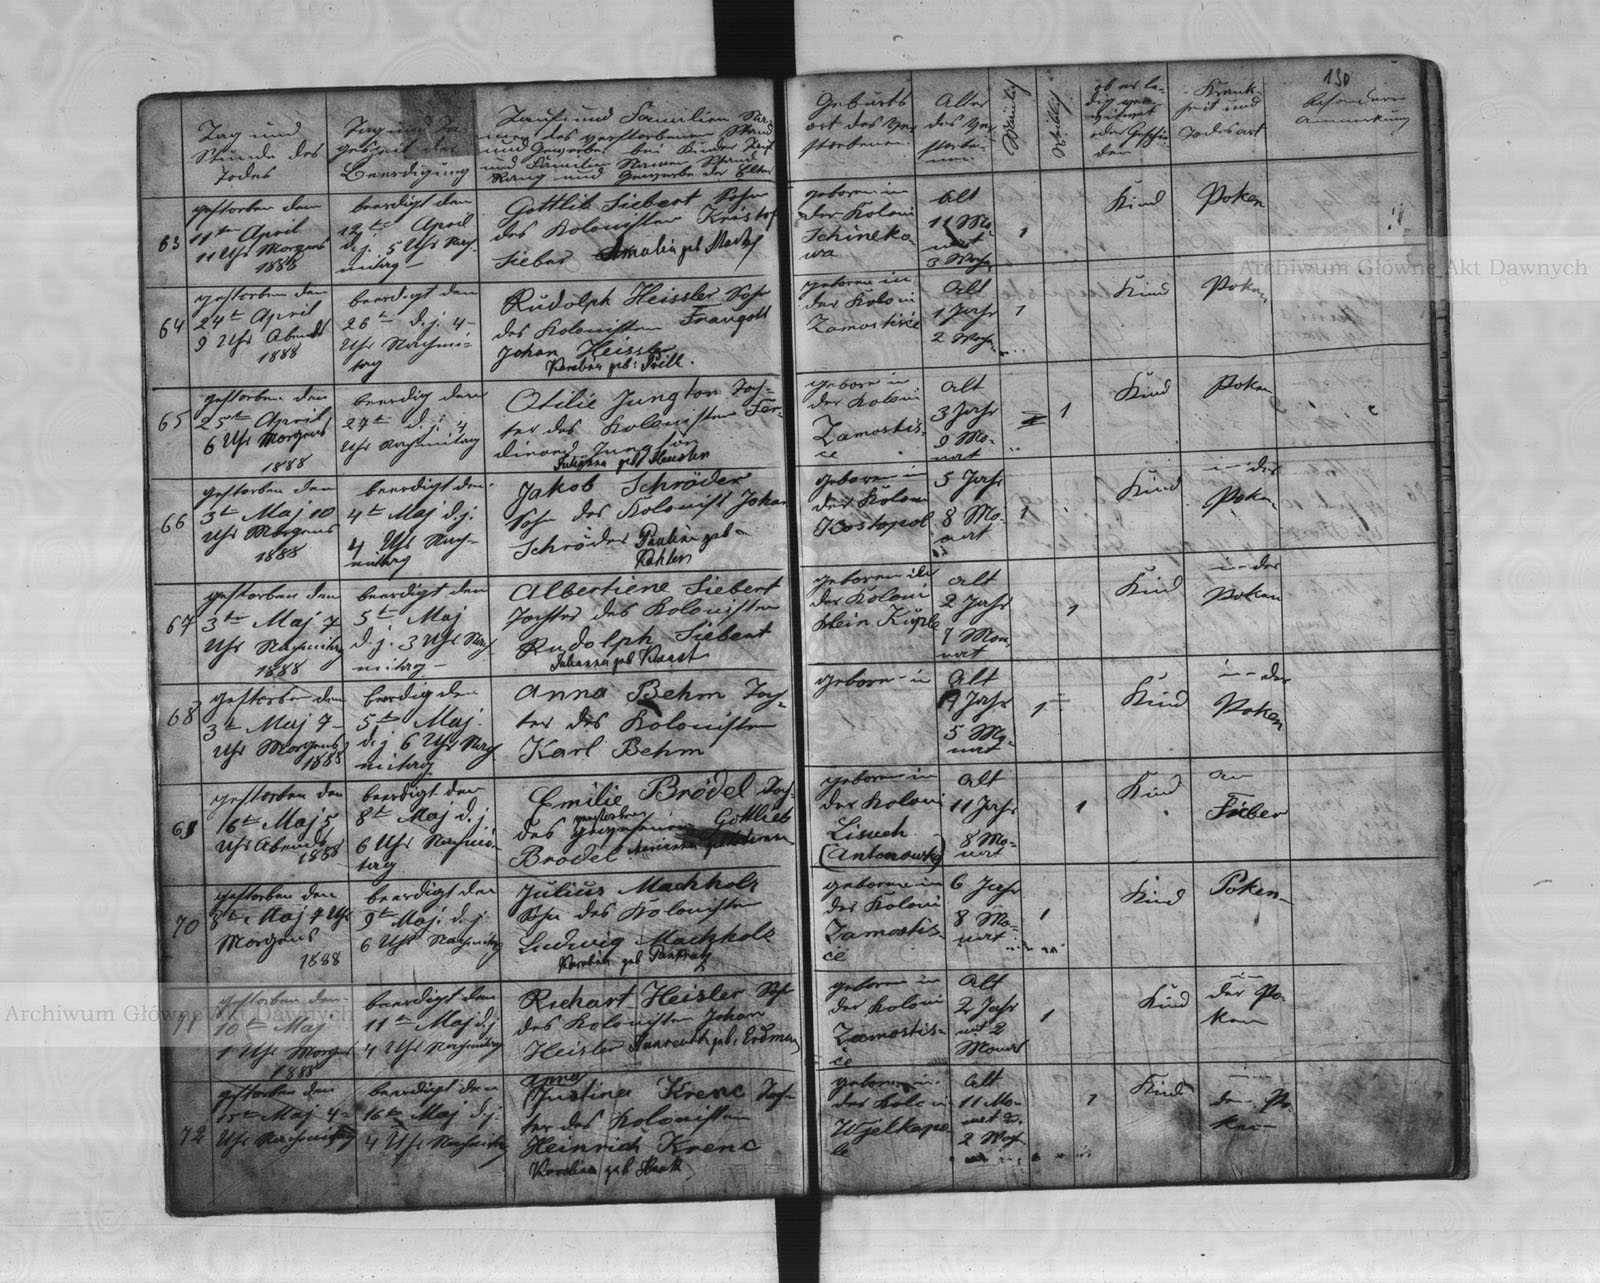 130
Tag und
Stunde des
Todes
Tag und Ta-
geszeit der
Beerdigung
Tauf und Familien Na-
men des verstorbenen Stand
und Gewerbe bei Kinder Tauf
und Familien Namen, Stand
Rang und Gewerbe der Elter
Geburts
ort des Ver
storbenen
Alter
des Ver
storbe-
nen
Männlich
Weiblich
ob er le-
dig ver-
heiratet
oder Geschie
den
Krank-
heit und
Todesart
besondere
Anmerkung
63
gestorben den
11ten April
11 Uhr Morgens
1888
beerdigt den
12ten April
d. j. 5 Uhr Nach-
mitag
Gottlib Siebert Sohn
des Kolonisten Kristof
Sieber Amalia geb
geboren in
der Koloni
Schineko-
wa
alt
11 Mo-
nat
3 Woch
1
Kind
Poken
64
gestorben den
24ten April
9 Uhr Abends
1888
beerdigt den
26ten d. j. 4
Uhr Nachmi-
tag
Rudolph Heissler Sohn
des Kolonisten Fraugott
Johan Heissler
Karolina geb: Prill.
geboren in
der Koloni
Zamostisce
alt
1 Jahr
2 Woch
1
Kind
Poken
65
gestorben den
25ten April
6 Uhr Morgens
1888
beerdig den
27ten d. j. 4
Uhr Nachmitag
Otilie Jungton Toch-
ter des Kolonisten Fer-
dinand Jungton
Julianna geb Heusler
geboren in
der Koloni
Zamostis-
ce
alt
3 Jahr
9 Mo-
nat
1
Kind
Poken
66
gestorben den
3ten Maj 10
Uhr Morgens
1888
beerdigt den
4ten Maj d. j.
4 Uhr Nach-
mitag
Jakob Schröder
Sohn des Kolonist Johan
Schröder Paulina geb
geboren in
der Koloni
Kostopol
5 Jahr
8 Mo-
nat
1
Kind
in der
Poken
67
gestorben den
3ten Maj 7
Uhr Nachmitag
1888
beerdigt den
5ten Maj
d. j. 3 Uhr Nach
mitag
Albertiene Siebert
Tochter des Kolonisten
Rudolph Siebert
Julianna geb
geboren in
der Koloni
klein
alt
2 Jahr
Mon-
nat
1
Kind
in der
Poken
68
gestorben den
3ten Maj 7
Uhr Morgens
1888
beerdig den
5ten Maj
d. j 6 Uhr Nach
mitag
Anna Behm Toch-
ter des Kolonisten
Karl Behm
geboren in
alt
Jahr
5 Mo-
nat
1
Kind
in der
Poken
69
gestorben den
6ten Maj 5
Uhr Abends
1888
beerdigt den
8ten Maj d. j.
6 Uhr Nachmi-
tag
Emilie Brödel Toch-
verstorbenen
des Gottlieb
Brödel
geboren in
der Koloni
Lisuch
(Antonowka)
alt
11 Jahr
8 Mo-
nat
1
Kind
an
Fieber
70
gestorben den
8ten Maj 4 Uhr
Morgens
1888
beerdigt den
9ten Maj. d. j.
6 Uhr Nachmitag
Julius Machholz
Sohn des Kolonisten
Ludwig Machholz
Karolina geb Pankratz
geboren in
der Koloni
Zamostis-
ce
6 Jahr
8 Mo-
nat
1
Kind
Poken
71
gestorben den
10ten Maj
1 Uhr Morgens
1888
beerdigt den
11ten Maj d. j
4 Uhr Nachmitag
Richart Heisler Sohn
des Kolonisten Johan
Heisler geb. Erdman
geboren in
der Koloni
Zamostis-
ce
Alt
2 Jahr
und 2
Monat
1
Kind
in
der Po-
ken
72
gestorben den
15ten Maj 4
Uhr Nachmitag
beerdigt den
16ten Maj d. j.
4 Uhr Nachmitag
Anna
Justina Krenc Toch-
ter des Kolonisten
Heinrich Krenc
Karolina geb
geboren in
der Koloni
Wjelkapo-
le
alt
11 Mo-
nat u.
2 Woch
1
Kind
in
den Po-
ken
Archiwum Główne Akt Dawnych
Archiwum Główne Akt Dawnych